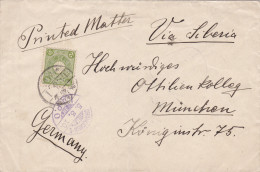 Printed Matter
Via Siberia
Hochwürdiges
Ottilien Kolleg
München
Königinstr. 75.
Germany.